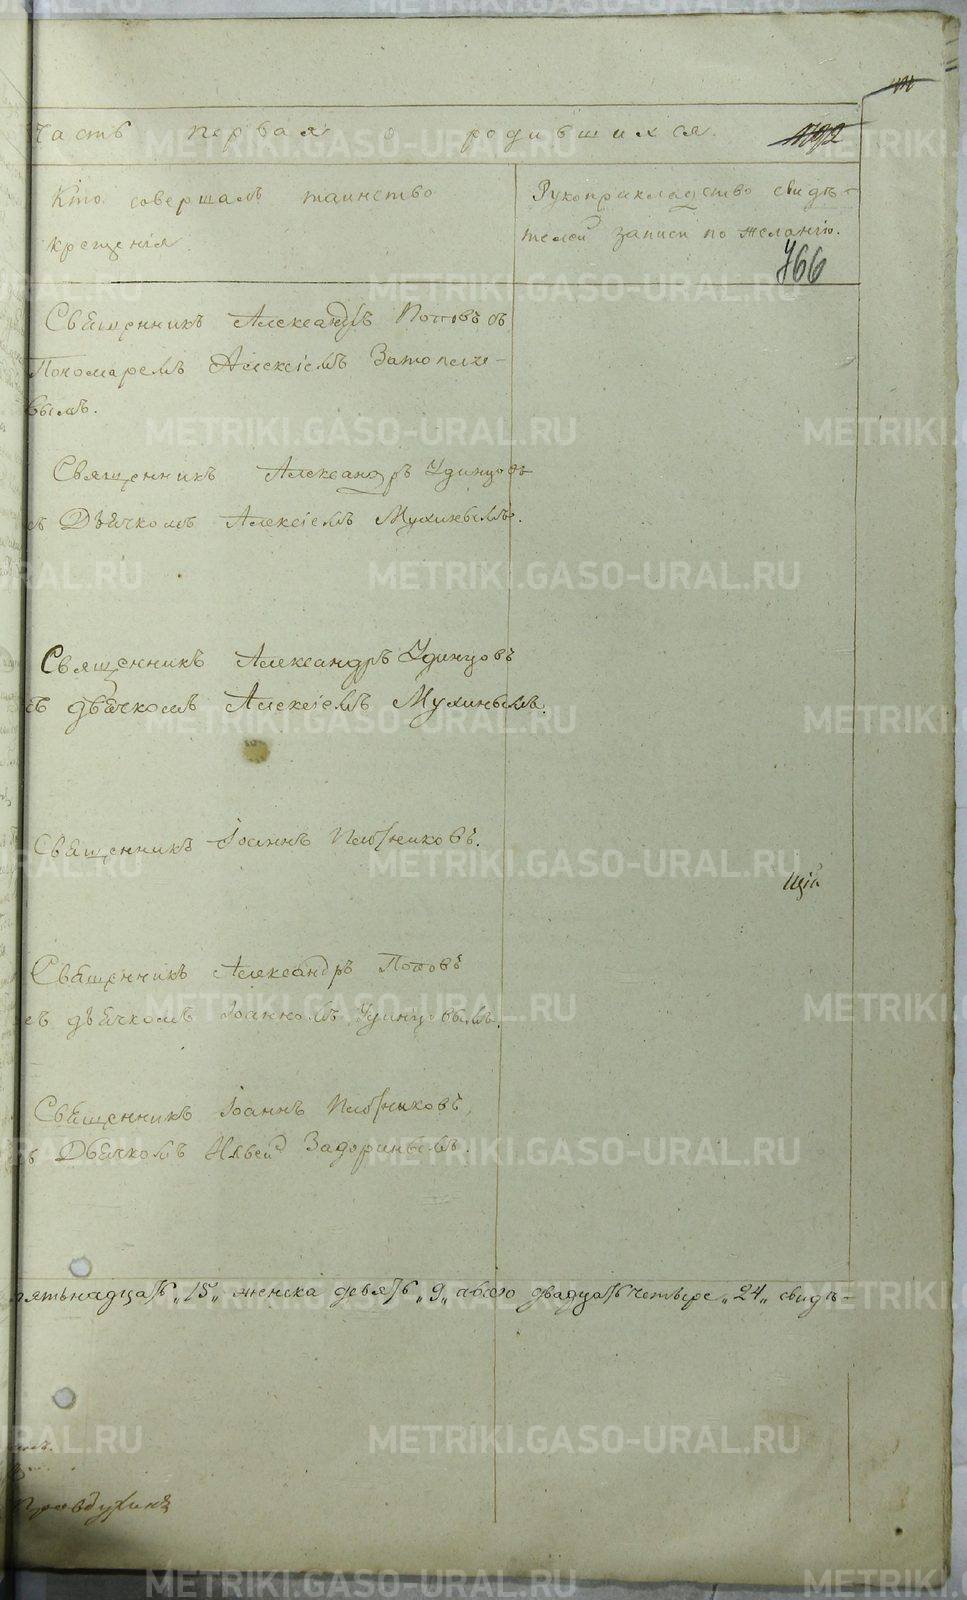 Часть первая о родившихся.
Кто совершалъ таинство
крещенія.
Рукоприкладство свидѣ-
телей записи по желанію.
466
Священникъ Александръ Поповъ съ
Пономаремъ Алексіемъ Затопляе-
вымъ.
Священникъ Александръ Удинцовъ
съ Дьячкомъ Алексіемъ Мухинымъ.
Священникъ Александръ Удинцовъ
съ дьячкомъ Алексіемъ Мухинымъ.
Священникъ Іоаннъ Плотниковъ.
щій
Священникъ Александръ Поповъ
съ дьячкомъ Іоанномъ Удинцовымъ.
Священникъ Іоаннъ Плотниковъ,
съ Дьячкомъ Ильей Задоринымъ.
пятьнадцать „15„ женска девять „9„ обоего двадцать четыре „24„ свидѣ-
Правдухинъ
METRIKI.GASO-URAL.RU